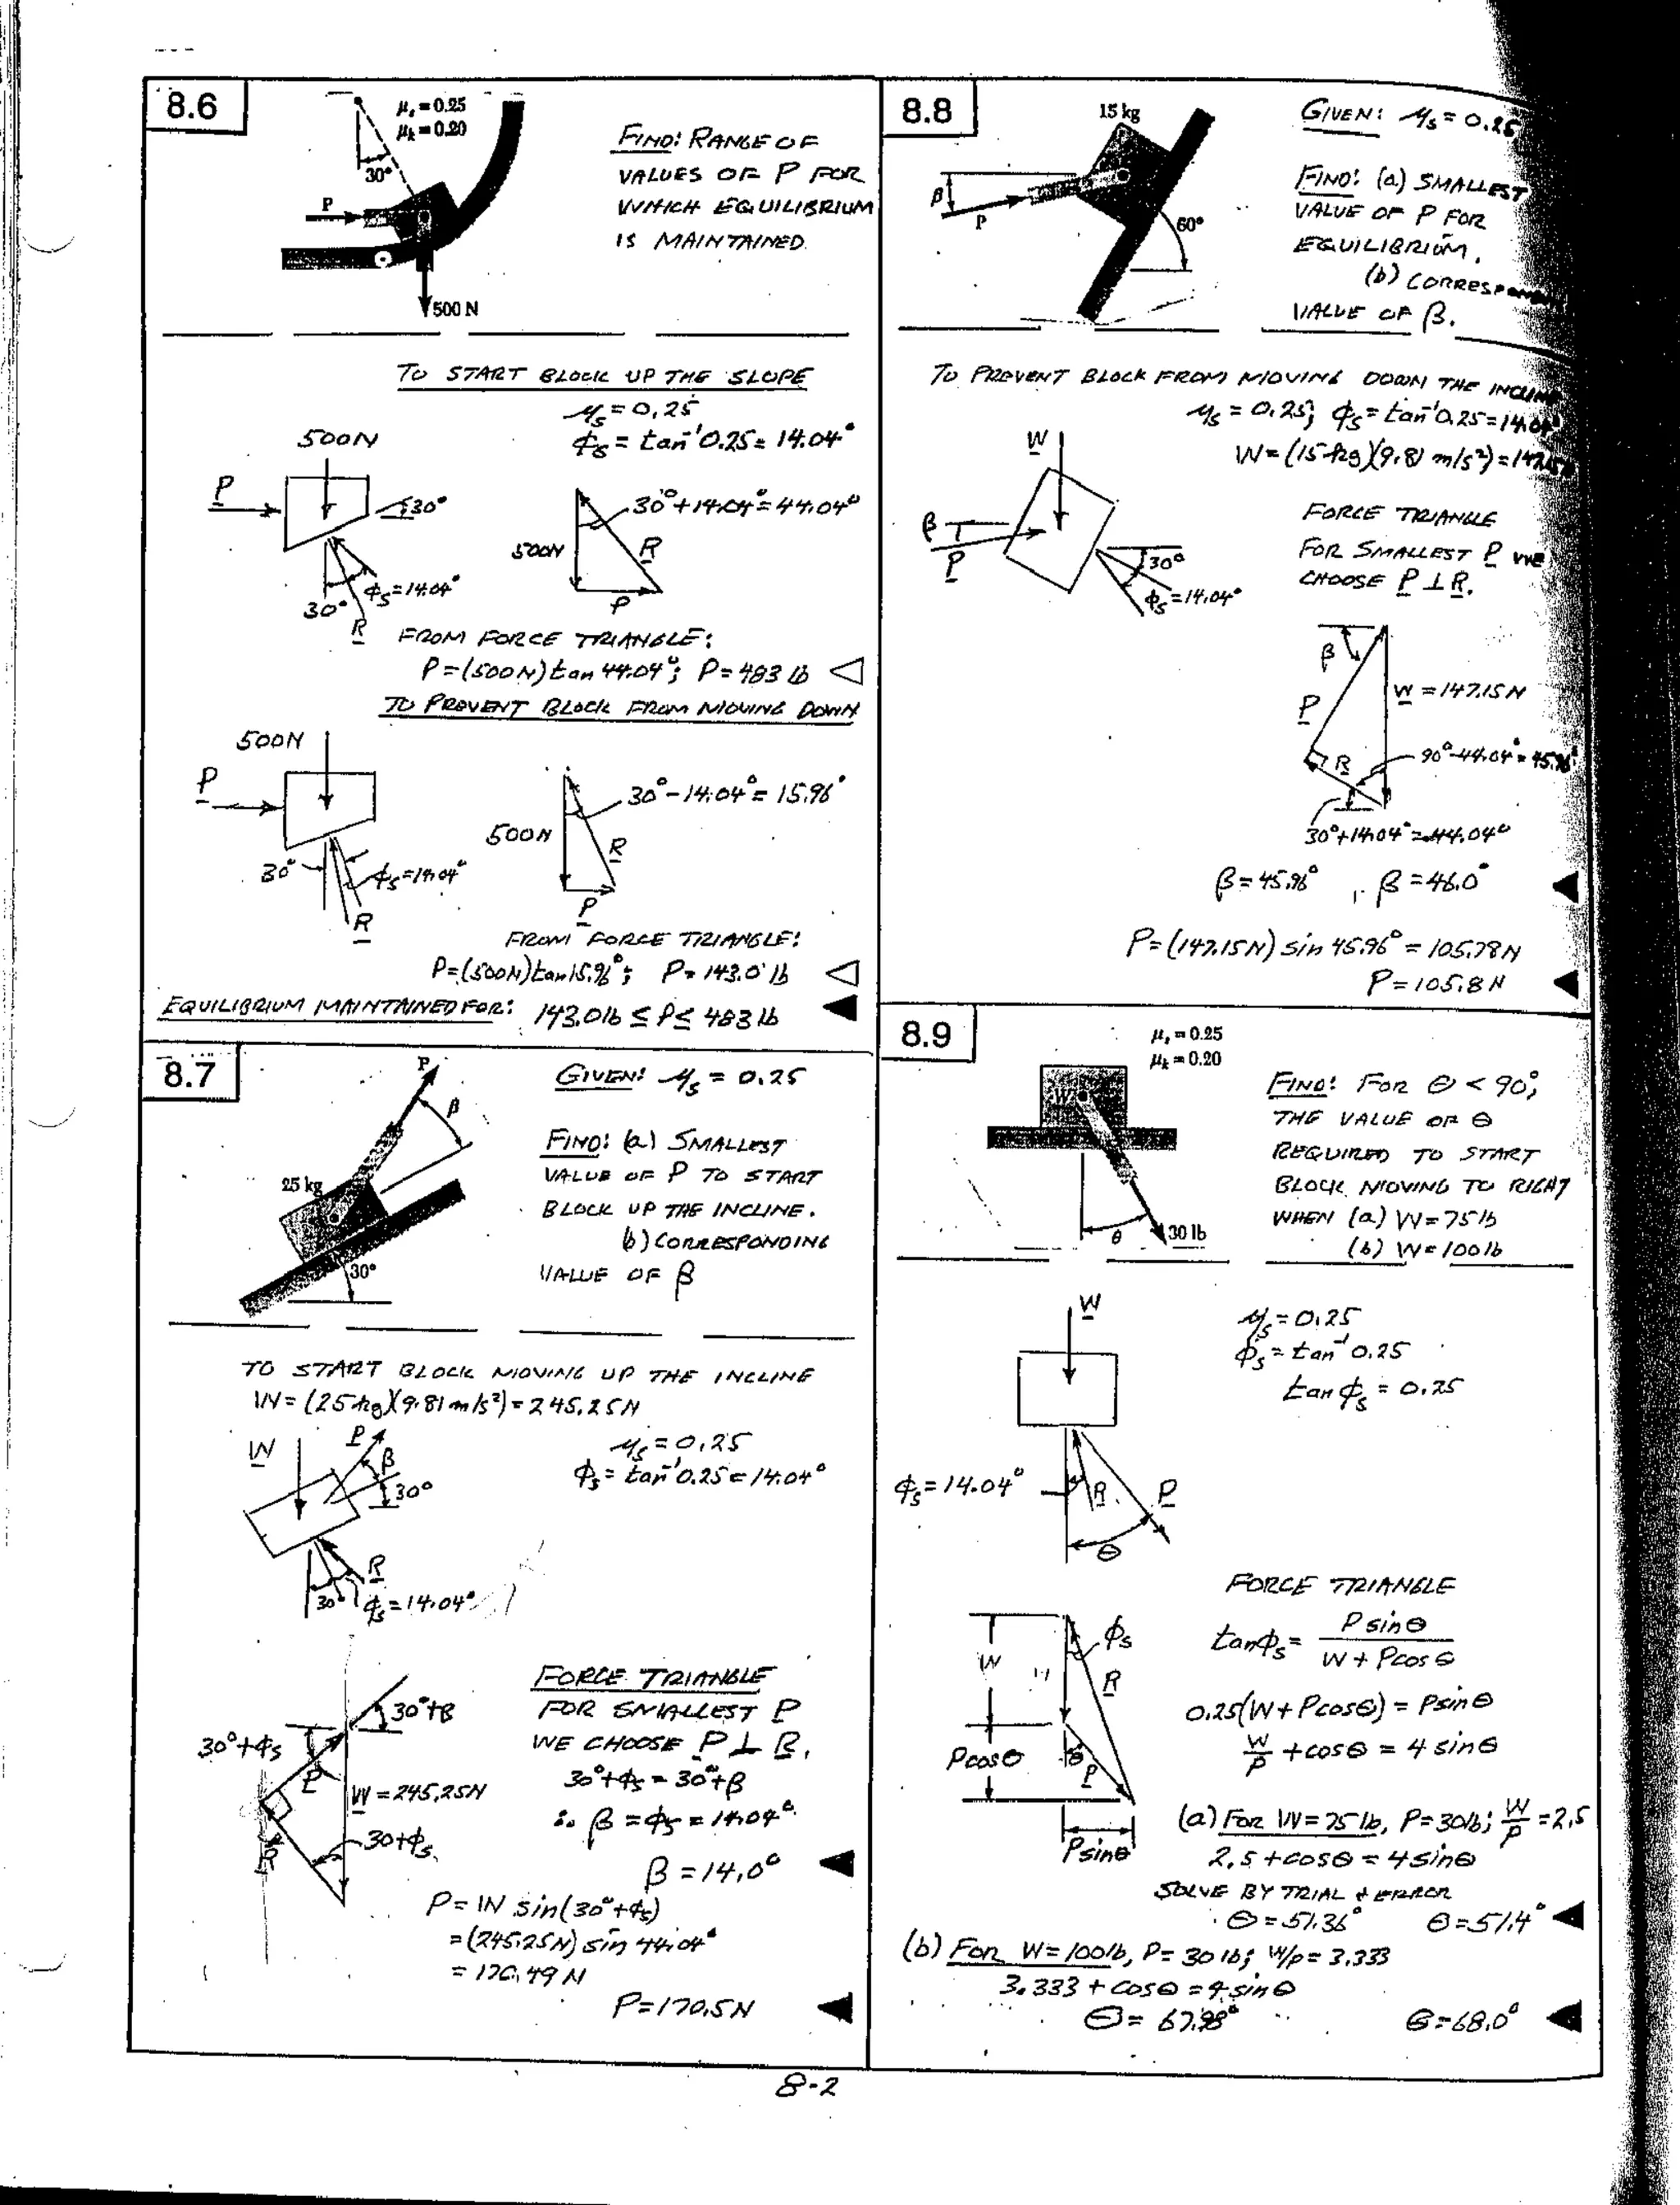 8.6
μs = 0.25
μk = 0.20
30°
P
500 N
FIND: RANGE OF
VALUES OF P FOR
WHICH EQUILIBRIUM
IS MAINTAINED.
TO START BLOCK UP THE SLOPE
μs = 0.25
φs = tan⁻¹0.25 = 14.04°
500N
P
30°
30°+14.04° = 44.04°
500N
R
P
φs = 14.04°
30°
R
FROM FORCE TRIANGLE:
P = (500N) tan 44.04°; P = 483 lb
TO PREVENT BLOCK FROM MOVING DOWN
500N
P
30° - 14.04° = 15.96°
500N
R
P
30°
φs = 14.04°
R
FROM FORCE TRIANGLE:
P = (500N) tan 15.96°; P = 143.0 lb
EQUILIBRIUM MAINTAINED FOR: 143.0 lb ≤ P ≤ 483 lb
8.7
P
β
25 kg
30°
GIVEN: μs = 0.25
FIND: (a) SMALLEST
VALUE OF P TO START
BLOCK UP THE INCLINE.
b) CORRESPONDING
VALUE OF β
TO START BLOCK MOVING UP THE INCLINE
W = (25 kg)(9.81 m/s²) = 245.25N
W
P
β
30°
μs = 0.25
φs = tan⁻¹0.25 = 14.04°
R
30°
φs = 14.04°
FORCE TRIANGLE
FOR SMALLEST P
WE CHOOSE P ⊥ R.
30°+φs = 30°+β
∴ β = φs = 14.04°
β = 14.0°
30°+β
30°+φs
P
W = 245.25N
30+φs
R
P = W sin(30°+φs)
= (245.25N) sin 44.04°
= 170.49 N
P = 170.5N
8.8
15 kg
β
P
60°
GIVEN: μs = 0.25
FIND: (a) SMALLEST
VALUE OF P FOR
EQUILIBRIUM.
(b)
VALUE OF β.
TO PREVENT BLOCK FROM MOVING DOWN THE
μs = 0.25; φs = tan⁻¹0.25 = 14.04°
W = (15 kg)(9.81 m/s²) =
W
β
P
30°
φs = 14.04°
FORCE TRIANGLE
FOR SMALLEST P WE
CHOOSE P ⊥ R.
β
P
W = 147.15N
R
90°-44.04° = 45.96°
30°+14.04° = 44.04°
β = 45.96° , β = 46.0°
P = (147.15N) sin 45.96° = 105.78N
P = 105.8 N
8.9
μs = 0.25
μk = 0.20
W
θ
30 lb
FIND: FOR θ < 90°,
THE VALUE OF θ
REQUIRED TO START
BLOCK MOVING TO RIGHT
WHEN (a) W = 75 lb
(b) W = 100 lb
W
μs = 0.25
φs = tan⁻¹ 0.25
tan φs = 0.25
φs = 14.04°
R
P
θ
FORCE TRIANGLE
W
φs
R
P cos θ
θ
P
P sin θ
tan φs = P sin θ / W + P cos θ
0.25(W + P cos θ) = P sin θ
W/P + cos θ = 4 sin θ
(a) FOR W = 75 lb, P = 30 lb; W/P = 2.5
2.5 + cos θ = 4 sin θ
SOLVE BY TRIAL & ERROR
θ = 51.36° θ = 51.4°
(b) FOR W = 100 lb, P = 30 lb; W/P = 3.333
3.333 + cos θ = 4 sin θ
θ = 67.98° θ = 68.0°
8-2